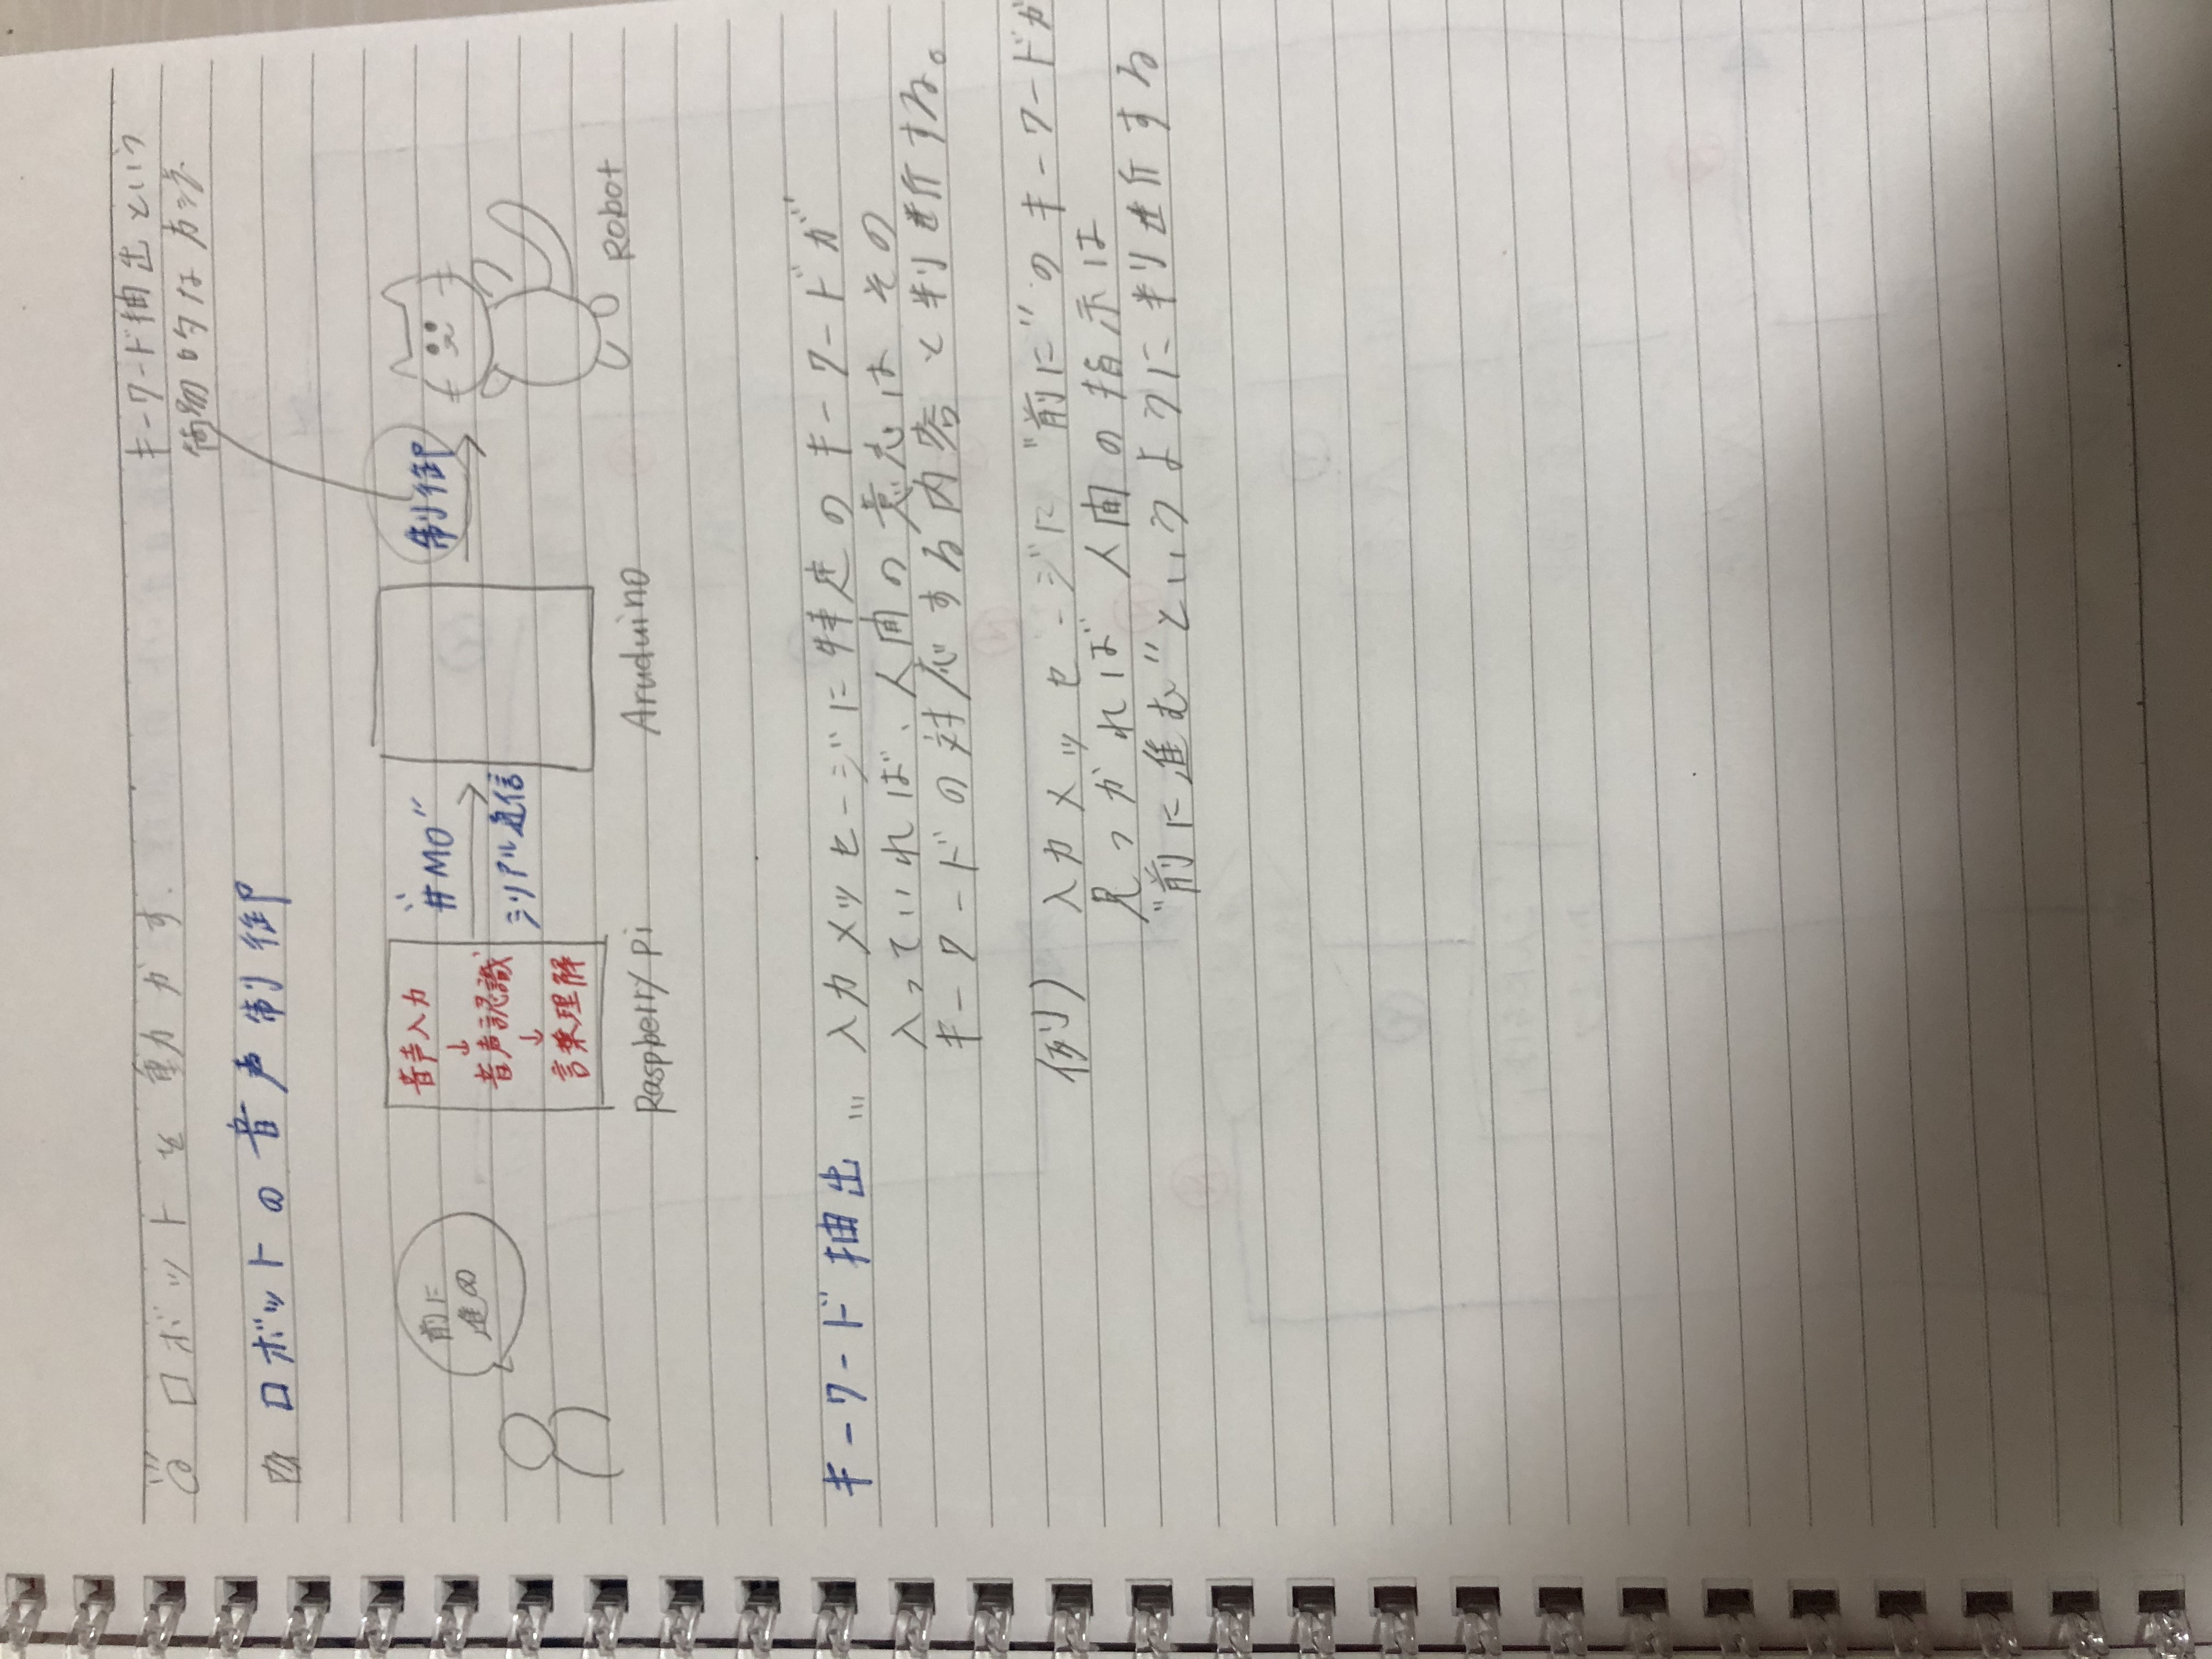 ロボットを動かす.
キーワード抽出という
的な方法
ロボットの音声制御
前に
進め
音声入力
↓
音声認識
↓
言葉理解
"#M0"
シリアル通信
制御
Raspberry pi
Aruduino
Robot
キーワード抽出 … 入力メッセージに特定のキーワードが
入っていれば、人間の意志はその
キーワードの対応する内容と判断する。
例) 入力メッセージに"前に"のキーワードが
見つかれば 人間の指示は
"前に進む"というように判断する